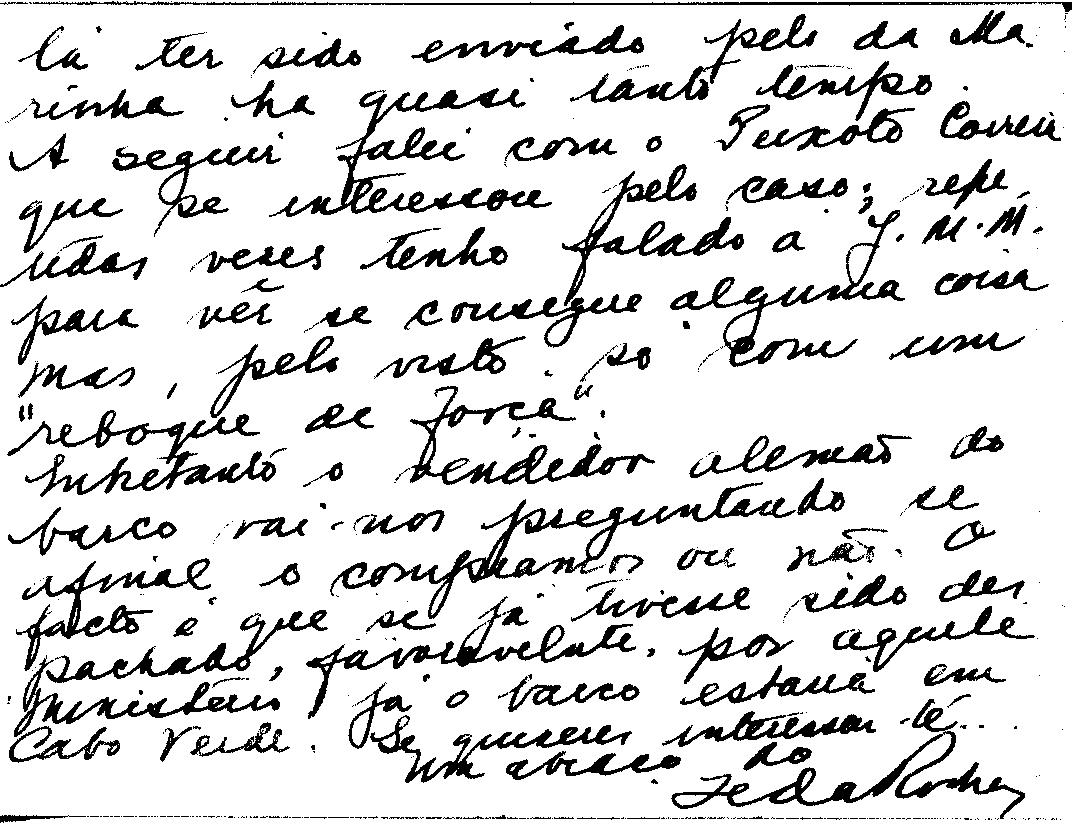 lá ter sido enviado pelo da Ma
rinha ha quasi tanto tempo.
A seguir falei com o Peixoto Correia
que se interessou pelo caso; repe
tidas vezes tenho falado a J. M. M.
para vêr se consegue alguma coisa
mas, pelo visto só com um
"reboque de força".
Entretanto o vendedor alemão do
barco vai-nos preguntando se
afinal o compramos ou não. O
facto é que se já tivesse sido des
pachado, favoravelmte, por aquele
Ministério, já o barco estaria em
Cabo Verde. Se quiseres interessar-te...
um abraço do